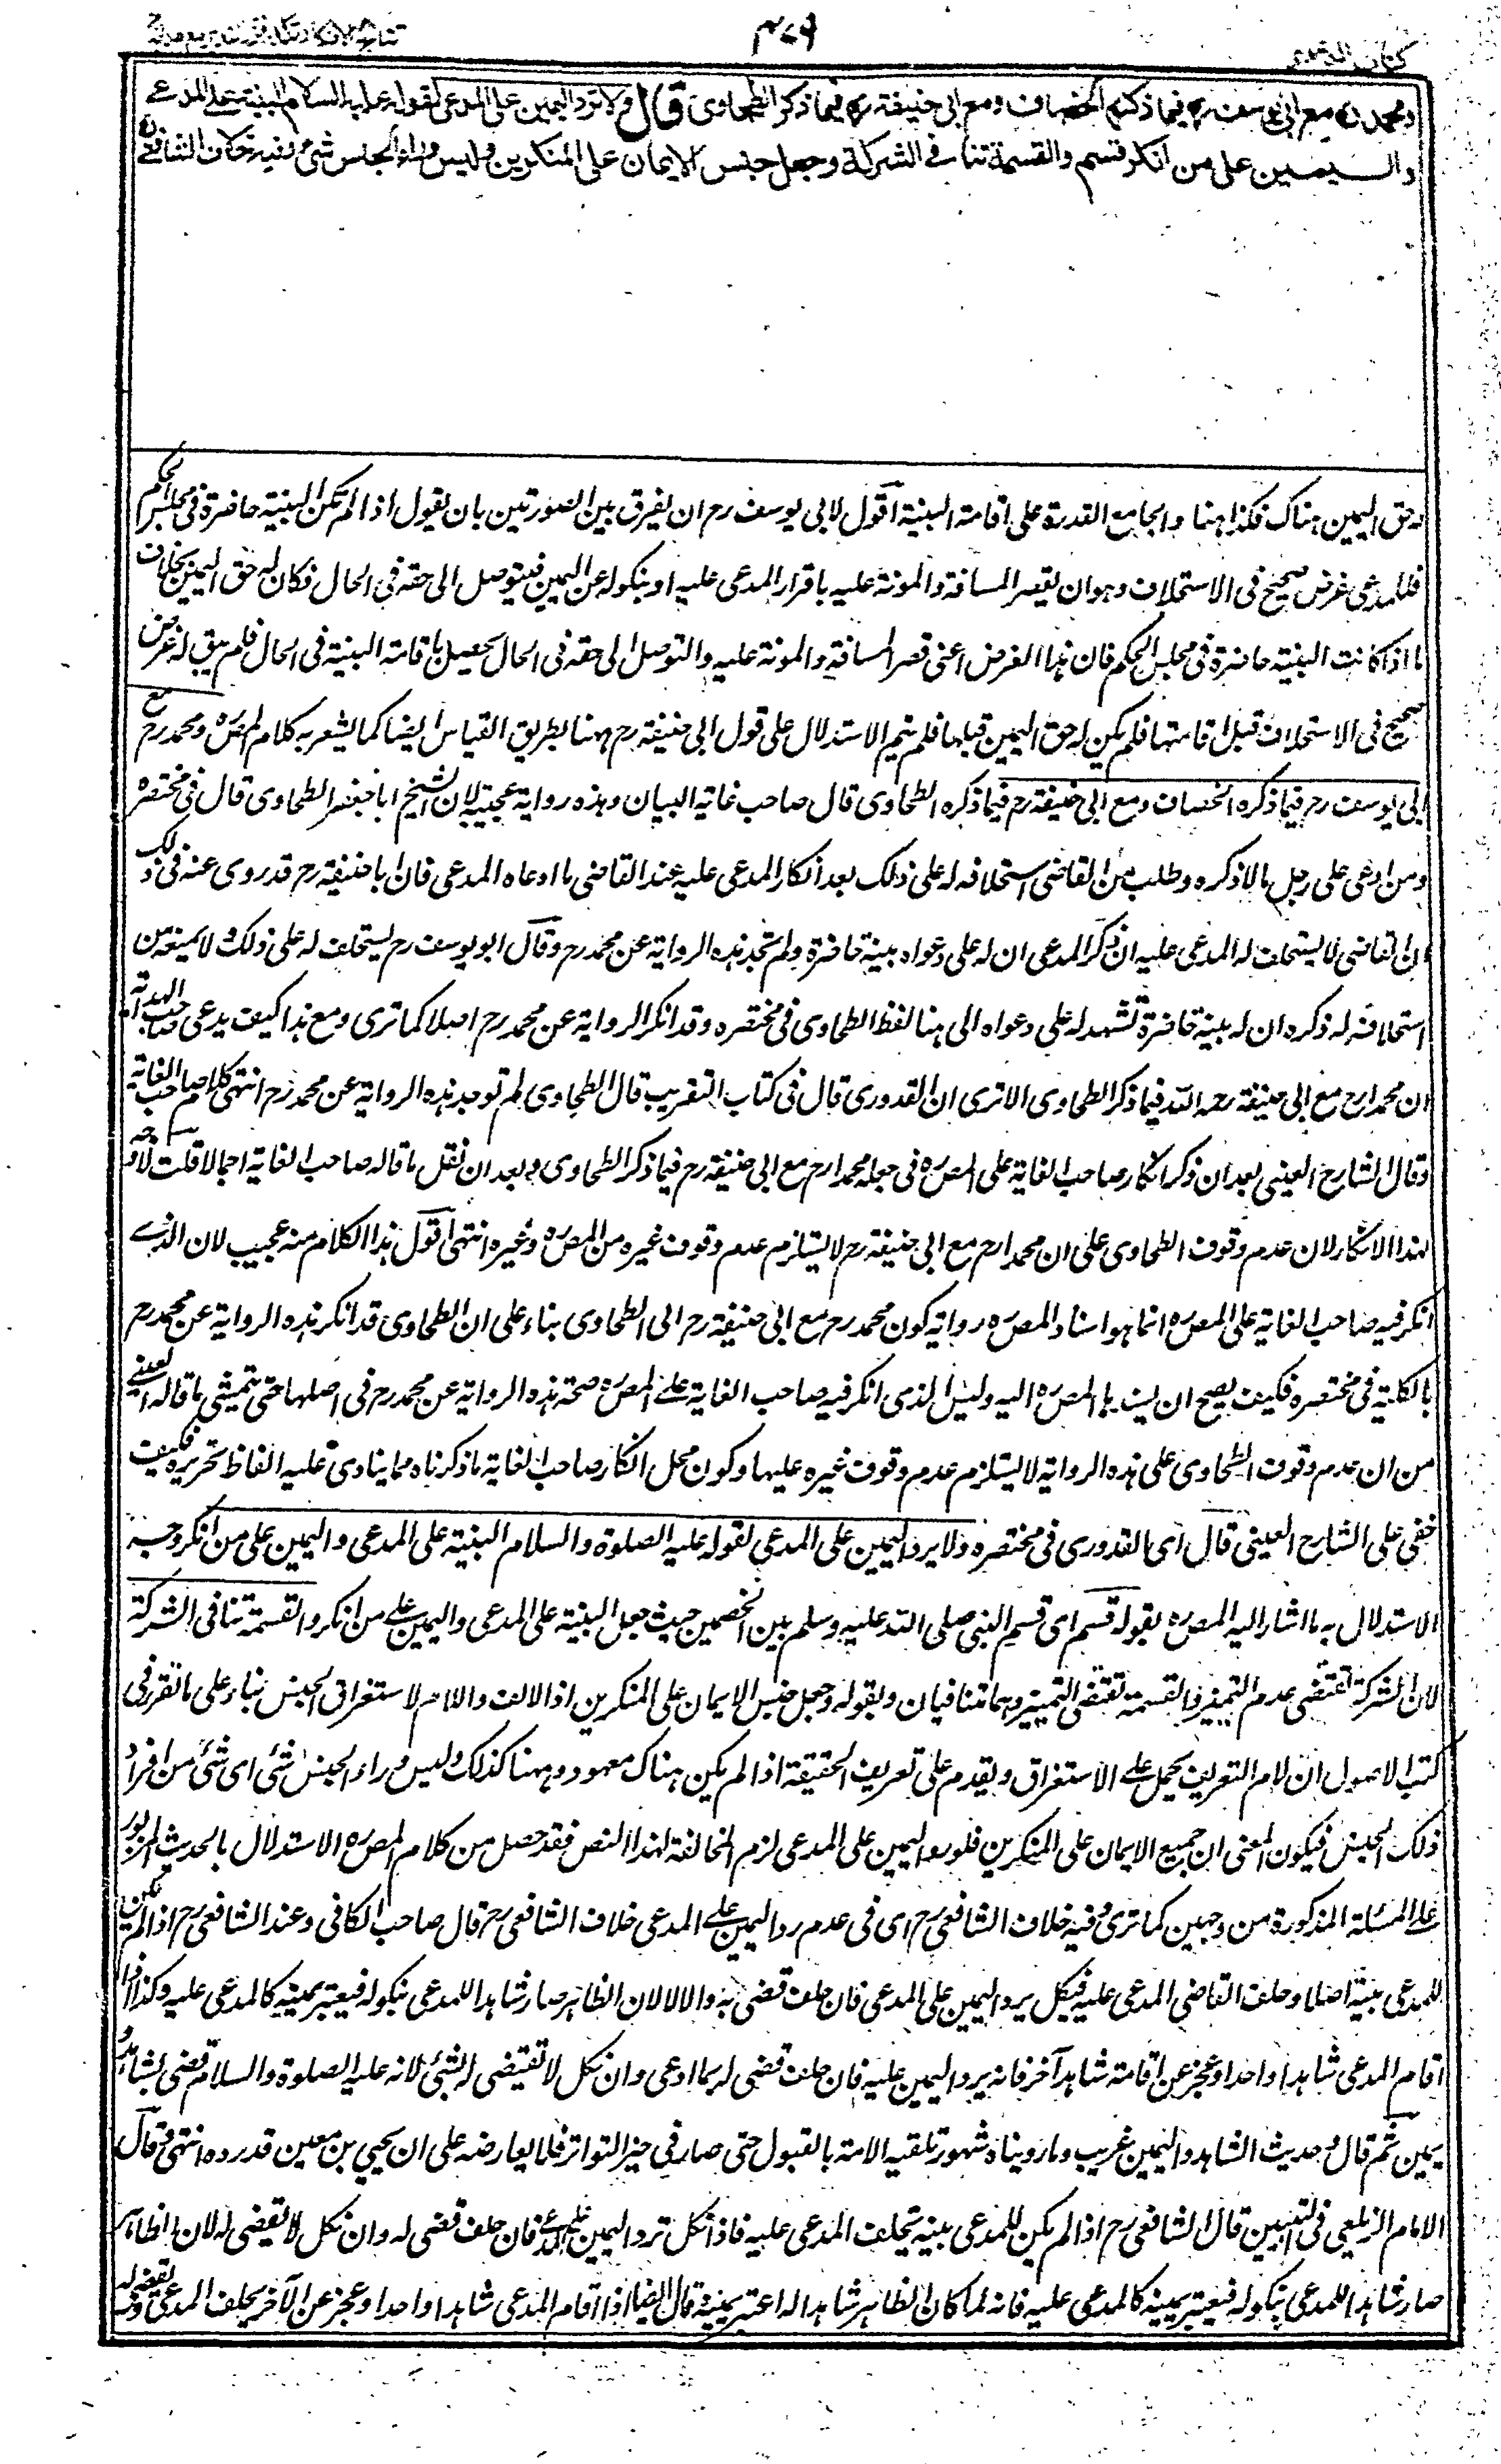 كتاب الدعوى
٤٧٩
ومحمد ره مع ابي يوسف ره فيما ذكره الخصاف ومع ابي حنيفة ره فيما ذكر الطحاوى قال ولا ترد اليمين على المدعى لقوله عليه السلام البينة على المدعے
واليمين على من انكر قسم والقسمة تنافى الشركة وجعل جنس الايمان على المنكرين وليس وراء الجنس شئ وفيه خلاف الشافعى
له حق اليمين هناك فكذا ههنا والجامع القدرة على اقامة البينة اقول لابى يوسف رح ان يفرق بين الصورتين بان يقول اذا لم تكن البينة حاضرة فى مجلس الحكم
فللمدعى غرض صحيح فى الاستحلاف وهو ان يقصر المسافة والمونة عليه باقرار المدعى عليه او بنكوله عن اليمين فيتوصل الى حقه فى الحال فكان له حق اليمين بخلاف
ما اذا كانت البينة حاضرة فى مجلس الحكم فان هذا الغرض اعنى قصر المسافة والمونة عليه والتوصل الى حقه فى الحال يحصل باقامة البينة فى الحال فلم يبق له غرض
صحيح فى الاستحلاف قبل اقامتها فلم يكن له حق اليمين قبلها فلم يتم الاستدلال على قول ابى حنيفة رح ههنا بطريق القياس ايضا كما يشعر به كلام المصره ومحمد رح مع
ابى يوسف رح فيما ذكره الخصاف ومع ابى حنيفة رح فيما ذكره الطحاوى قال صاحب غاية البيان وهذه رواية عجيبة لان الشيخ ابا جعفر الطحاوى قال فى مختصره
ومن ادعى على رجل مالا ذكره وطلب من القاضى استحلافه له على ذلك بعد انكار المدعى عليه عند القاضى ما ادعاه المدعى فان ابا حنيفة رح قد روى عنه فى ذلك
ان القاضى لا يستحلف له المدعى عليه ان ذكر المدعى ان له على دعواه بينة حاضرة ولم نجد هذه الرواية عن محمد رح وقال ابو يوسف رح يستحلف له على ذلك ولا يمنعه من
استحلافه له ذكره ان له بينة حاضرة تشهد له على دعواه الى هنا لفظ الطحاوى فى مختصره وقد انكر الرواية عن محمد رح اصلا كما ترى ومع هذا كيف يدعى صاحب الهداية
ان محمدا رح مع ابى حنيفة رحمه الله فيما ذكر الطحاوى الا ترى ان القدورى قال فى كتاب التقريب قال الطحاوى لم توجد هذه الرواية عن محمد رح انتهى كلام صاحب الغاية
وقال الشارح العينى بعد ان ذكر انكار صاحب الغاية على المصره فى جعله محمدا رح مع ابى حنيفة رح فيما ذكر الطحاوى وبعد ان نقل ما قاله صاحب الغاية اجمالا قلت لا وجه
لهذا الانكار لان عدم وقوف الطحاوى على ان محمدا رح مع ابى حنيفة رح لا يستلزم عدم وقوف غيره من المصره وغيره انتهى اقول هذا الكلام منه عجيب لان الذے
انكر فيه صاحب الغاية على المصره انما هو اسناد المصره رواية كون محمد رح مع ابى حنيفة رح الى الطحاوى بناء على ان الطحاوى قد انكر هذه الرواية عن محمد رح
بالكلية فى مختصره فكيف يصح ان يسندها المصره اليه وليس الذى انكر فيه صاحب الغاية على المصره صحة هذه الرواية عن محمد رح فى اصلها حتى يتمشى ما قاله العينے
من ان عدم وقوف الطحاوى على هذه الرواية لا يستلزم عدم وقوف غيره عليها وكون محل انكار صاحب الغاية ما ذكرناه مما ينادى عليه الفاظ تحريره فكيف
خفى على الشارح العينى قال اى القدورى فى مختصره ولا يرد اليمين على المدعى لقوله عليه الصلوة والسلام البينة على المدعى واليمين على من انكر وجه
الاستدلال به ما اشار اليه المصره بقوله قسم اى قسم النبى صلى الله عليه وسلم بين الخصمين حيث جعل البينة على المدعى واليمين على من انكر والقسمة تنافى الشركة
لان الشركة تقتضى عدم التميز والقسمة تقتضى التميز وهما متنافيان وبقوله وجعل جنس الايمان على المنكرين اذ الالف واللام لاستغراق الجنس بناء على ما تقرر فى
كتب الاصول ان لام التعريف يحمل على الاستغراق ويقدم على تعريف الحقيقة اذا لم يكن هناك معهود وههنا كذلك وليس وراء الجنس شئ اى شئ من افراد
ذلك الجنس فيكون المعنى ان جميع الايمان على المنكرين فلو رد اليمين على المدعى لزم المخالفة لهذا النص فقد حصل من كلام المصره الاستدلال بالحديث المزبور
على المسئلة المذكورة من وجهين كما ترى وفيه خلاف الشافعى رح اى فى عدم رد اليمين على المدعى خلاف الشافعى رح قال صاحب الكافى وعند الشافعى رح اذا لم يكن
للمدعى بينة اصلا وحلف القاضى المدعى عليه فنكل يرد اليمين على المدعى فان حلف قضى به والا لا لان الظاهر صار شاهدا للمدعى بنكوله فيعتبر يمينه كالمدعى عليه وكذا اذا
اقام المدعى شاهدا واحدا وعجز عن اقامة شاهد آخر فانه يرد اليمين عليه فان حلف قضى له بما ادعى وان نكل لا تقتضى له بشئ لانه عليه الصلوة والسلام قضى بشاهد و
يمين ثم قال وحديث الشاهد واليمين غريب وما رويناه مشهور تلقته الامة بالقبول حتى صار فى حيز التواتر فلا يعارضه على ان يحيى بن معين قد رده انتهى وقال
الامام الزيلعى فى التبيين قال الشافعى رح اذا لم يكن للمدعى بينة يحلف المدعى عليه فاذا نكل ترد اليمين على المدعى فان حلف قضى له وان نكل لا يقضى له لان الظاهر
صار شاهدا للمدعى بنكوله فيعتبر يمينه كالمدعى عليه فانه لما كان الظاهر شاهدا له اعتبر يمينه وقال ايضا اذا اقام المدعى شاهدا واحدا وعجز عن الآخر يحلف المدعى ويقضى له